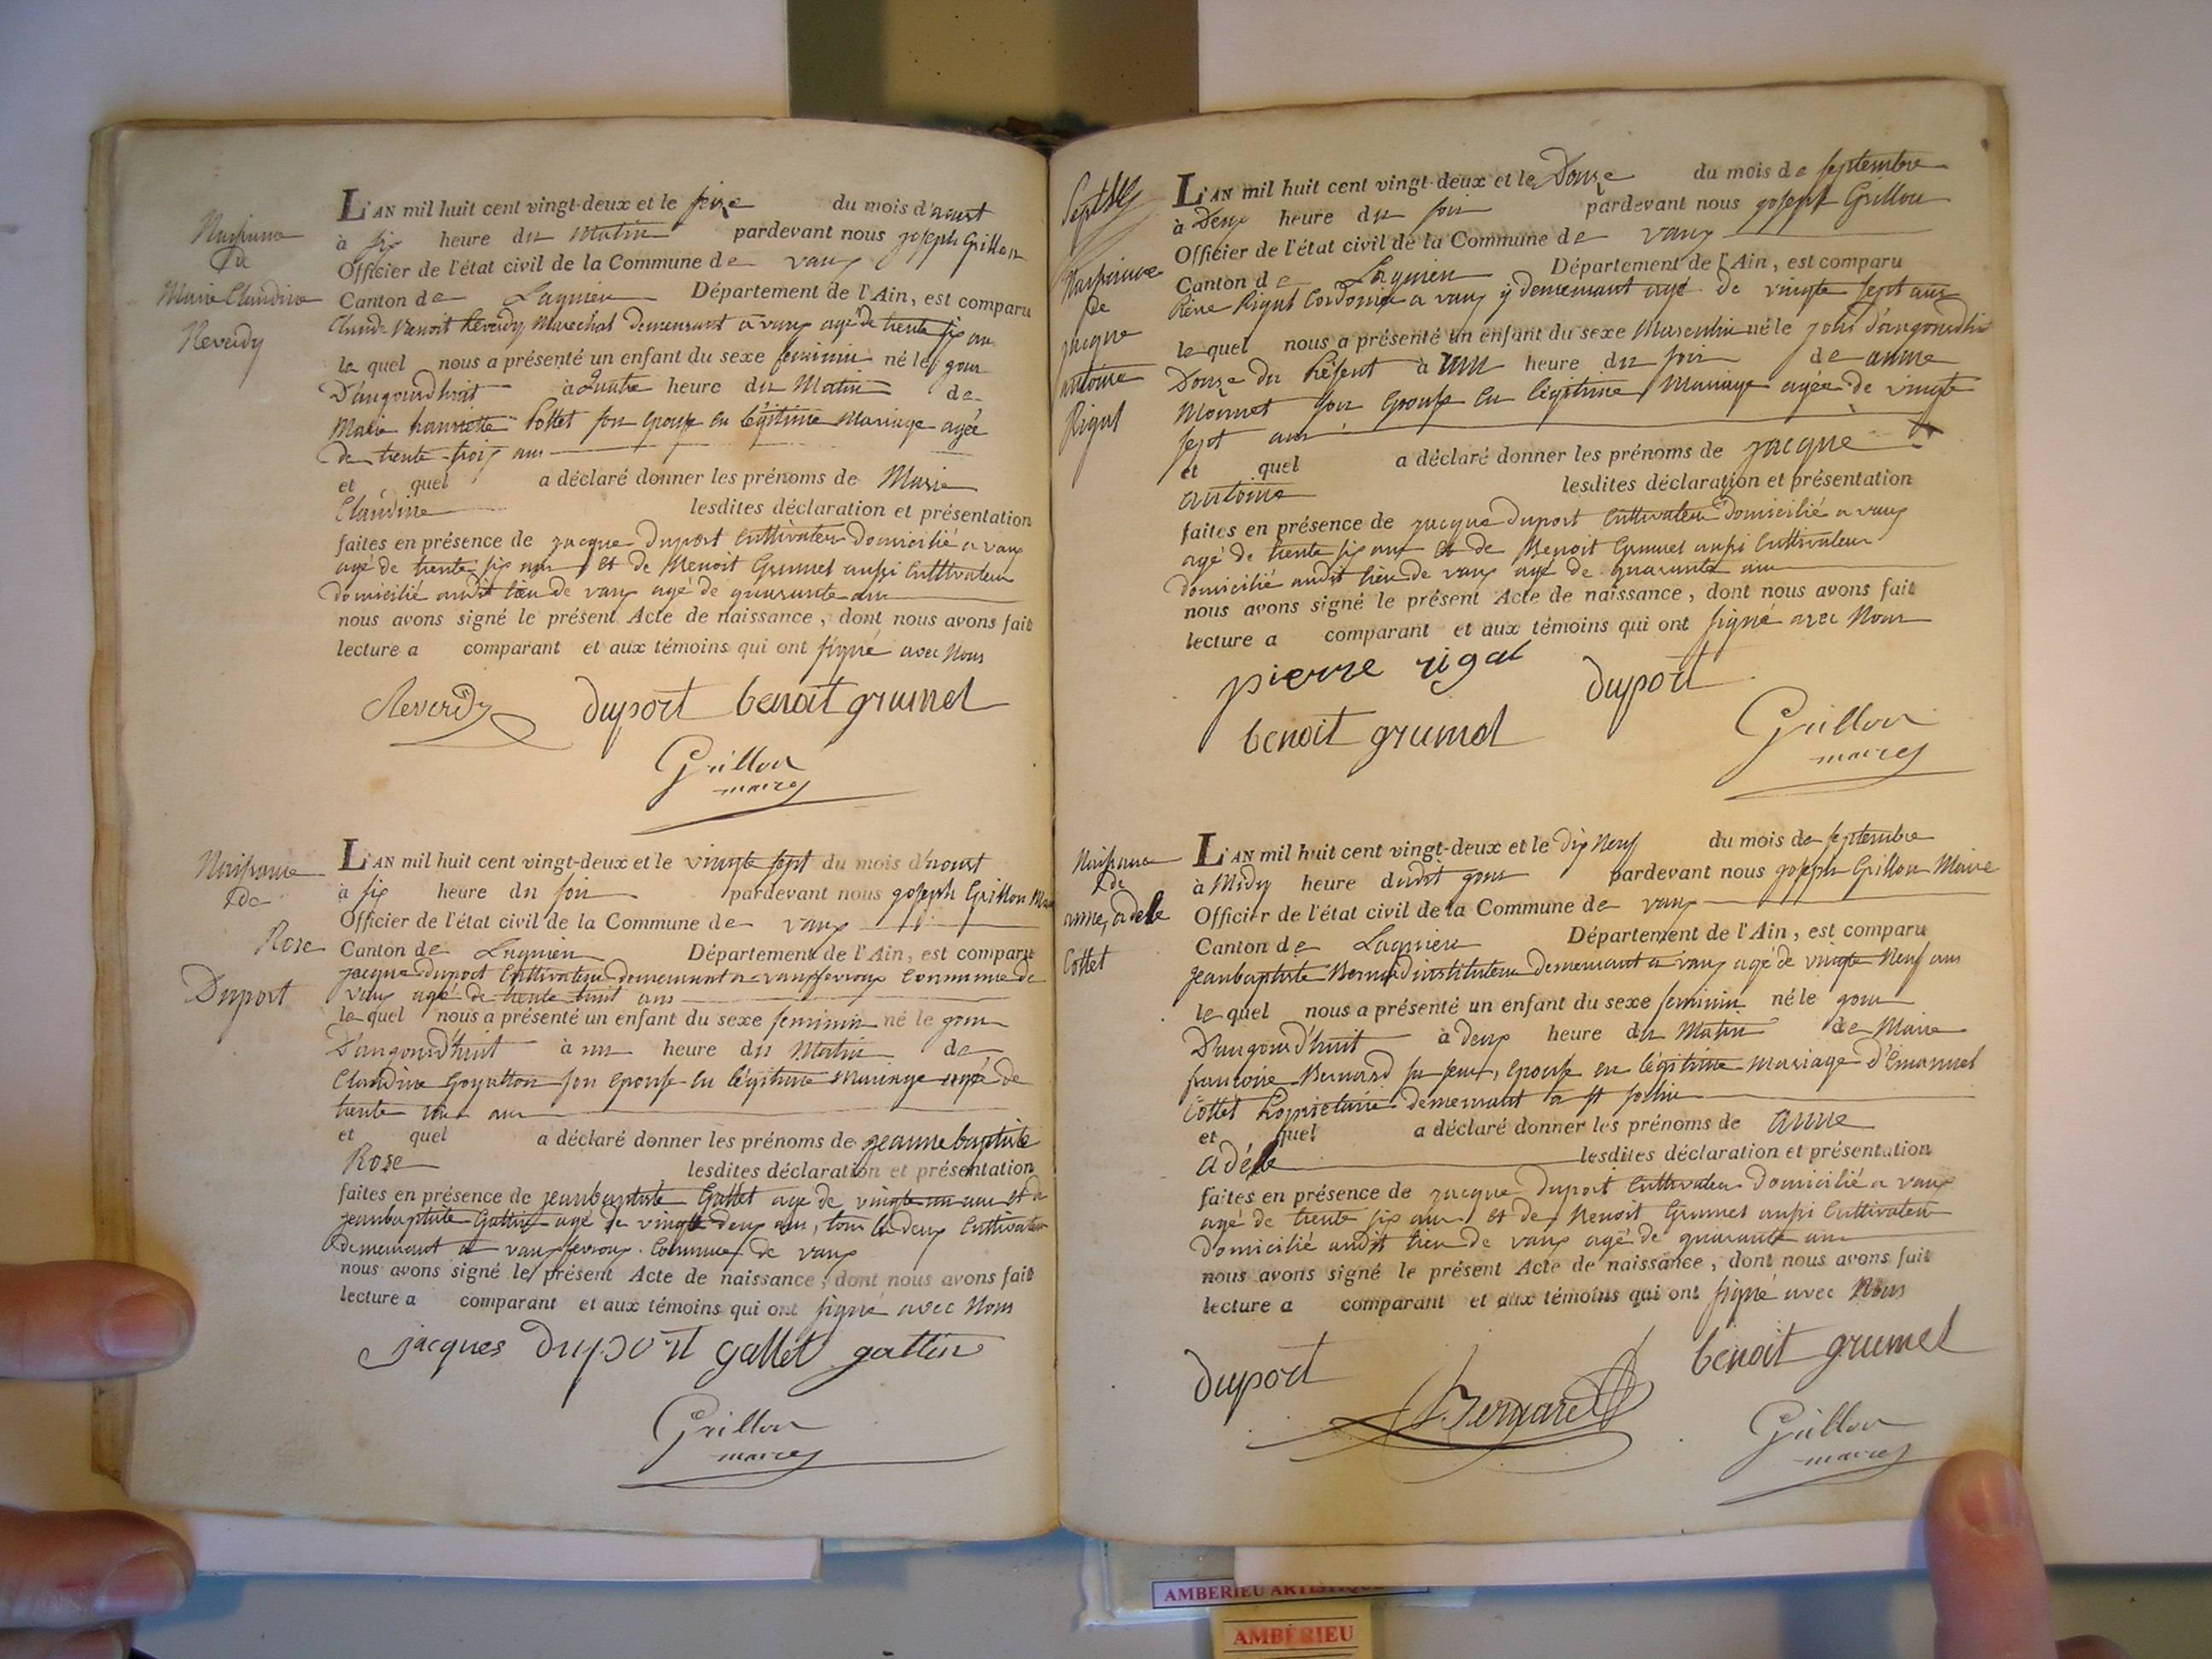 Naissance
de
Marie Claudine
Reverdy
L'AN mil huit cent vingt-deux et le seize du mois d'aoust
à six heure du matin pardevant nous joseph Grillon
Officier de l'état civil de la Commune de vaux
Canton de Lagnieu Département de l'Ain, est comparu
Claude Benoit Reverdy Marechal demeurant a vaux agé de trente six ans
le quel nous a présenté un enfant du sexe feminin né le jour
D'aujourd'huit à quatre heure du Matin de
Marie hanriette Pottet son Epouse en légitime Mariage agée
de trente trois ans
et quel a déclaré donner les prénoms de Marie
Claudine lesdites déclaration et présentation
faites en présence de jacque Duport Cultivateur Domicilié a vaux
agé de trente six ans et de Benoit Grumel aussi Cultivateur
domicilié audit lieu de vaux agé de quarante ans
nous avons signé le présent Acte de naissance, dont nous avons fait
lecture a comparant et aux témoins qui ont signé avec Nous
Reverdy duport benoit grumel
Grillon
maire
Naissance
de
Rose
Duport
L'AN mil huit cent vingt-deux et le vingte sept du mois d'aoust
à six heure du soir pardevant nous joseph Grillon Maire
Officier de l'état civil de la Commune de vaux
Canton de Lagnieu Département de l'Ain, est comparu
jacque duport Cultivateur demeurant a vauxfevroux Commune de
vaux agé de trente huit ans
le quel nous a présenté un enfant du sexe feminin né le jour
D'aujourd'huit à un heure du Matin de
Claudine Goyatton son Epouse en légitime Mariage agée de
trente un ans
et quel a déclaré donner les prénoms de jeanne baptiste
Rose lesdites déclaration et présentation
faites en présence de jeanbaptiste Gallet age de vingte un ans et de
jeanbaptiste Gattin agé de vingte deux ans, tous les deux Cultivateur
demeurant a vauxfevroux. Commune de vaux
nous avons signé le présent Acte de naissance, dont nous avons fait
lecture a comparant et aux témoins qui ont signé avec Nous
jacques duport gallet gattin
Grillon
maire
Naissance
de
jacque
antoine
Rigal
L'AN mil huit cent vingt-deux et le Douze du mois de septembre
à Deux heure du soir pardevant nous joseph Grillon
Officier de l'état civil de la Commune de vaux
Canton de Lagnieu Département de l'Ain, est comparu
Piere Rigal Cordonier a vaux y demeurant agé de vingte sept ans
le quel nous a présenté un enfant du sexe Masculin né le jour d'aujourdhui
Douze du Présent à une heure du soir de anne
Monnet son Epouse en légitime Mariage agée de vingte
sept ans
et quel a déclaré donner les prénoms de jacque
antoine lesdites déclaration et présentation
faites en présence de jacque duport Cultivateur Domicilié a vaux
agé de trente six ans et de Benoit Grumel aussi Cultivateur
domicilié audit lieu de vaux agé de quarante ans
nous avons signé le présent Acte de naissance, dont nous avons fait
lecture a comparant et aux témoins qui ont signé avec Nous
pierre rigal duport
benoit grumel Grillon
maire
Naissance
de
anne, adele
Cottet
L'AN mil huit cent vingt-deux et le dix Neuf du mois de septembre
à Midy heure dudit jour pardevant nous joseph Grillon Maire
Officier de l'état civil de la Commune de vaux
Canton de Lagnieu Département de l'Ain, est comparu
jeanbaptiste Bernard instituteur demeurant a vaux agé de vingte Neuf ans
le quel nous a présenté un enfant du sexe feminin né le jour
D'aujourd'huit à deux heure du Matin de Marie
francoise Bernard sa seur, Epouse en légitime mariage d'Emanuel
Cottet Propriétaire demeurant a st
et quel a déclaré donner les prénoms de anne
adéle lesdites déclaration et présentation
faites en présence de jacque duport Cultivateur Domicilié a vaux
agé de trente six ans et de Benoit Grumel aussi Cultivateur
Domicilié audit lieu de vaux agé de quarante ans
nous avons signé le présent Acte de naissance, dont nous avons fait
lecture a comparant et aux témoins qui ont signé avec Nous
duport Bernard benoit grumel
Grillon
maire
AMBERIEU
AMBERIEU